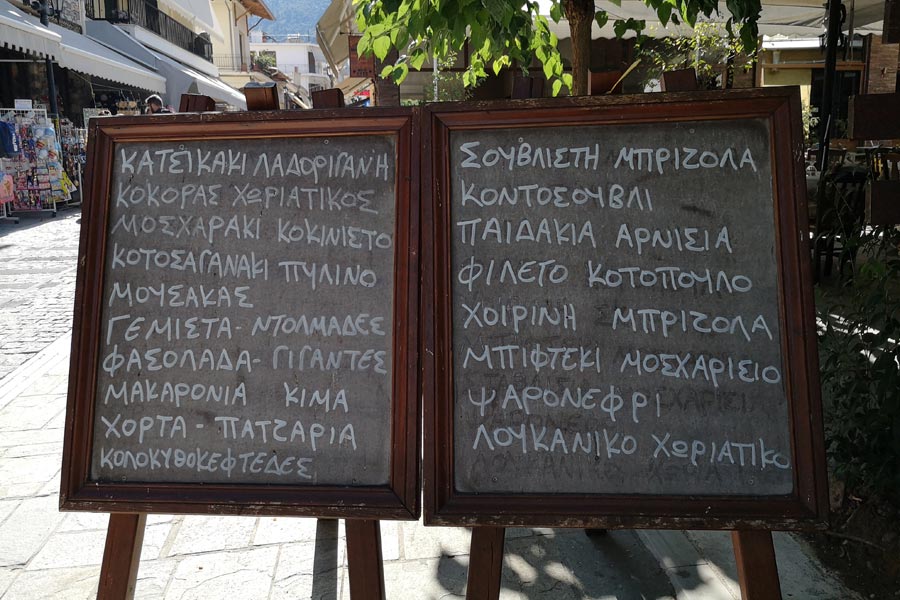 ΚΑΤΣΙΚΑΚΙ ΛΑΔΟΡΙΓΑΝΗ
ΚΟΚΟΡΑΣ ΧΩΡΙΑΤΙΚΟΣ
ΜΟΣΧΑΡΑΚΙ ΚΟΚΙΝΙΣΤΟ
ΚΟΤΟΣΑΓΑΝΑΚΙ ΠΥΛΙΝΟ
ΜΟΥΣΑΚΑΣ
ΓΕΜΙΣΤΑ - ΝΤΟΛΜΑΔΕΣ
ΦΑΣΟΛΑΔΑ - ΓΙΓΑΝΤΕΣ
ΜΑΚΑΡΟΝΙΑ ΚΙΜΑ
ΧΟΡΤΑ - ΠΑΤΖΑΡΙΑ
ΚΟΛΟΚΥΘΟΚΕΦΤΕΔΕΣ
ΣΟΥΒΛΙΣΤΗ ΜΠΡΙΖΟΛΑ
ΚΟΝΤΟΣΟΥΒΛΙ
ΠΑΙΔΑΚΙΑ ΑΡΝΙΣΙΑ
ΦΙΛΕΤΟ ΚΟΤΟΠΟΥΛΟ
ΧΟΙΡΙΝΗ ΜΠΡΙΖΟΛΑ
ΜΠΙΦΤΕΚΙ ΜΟΣΧΑΡΙΣΙΟ
ΨΑΡΟΝΕΦΡΙ
ΛΟΥΚΑΝΙΚΟ ΧΩΡΙΑΤΙΚΟ